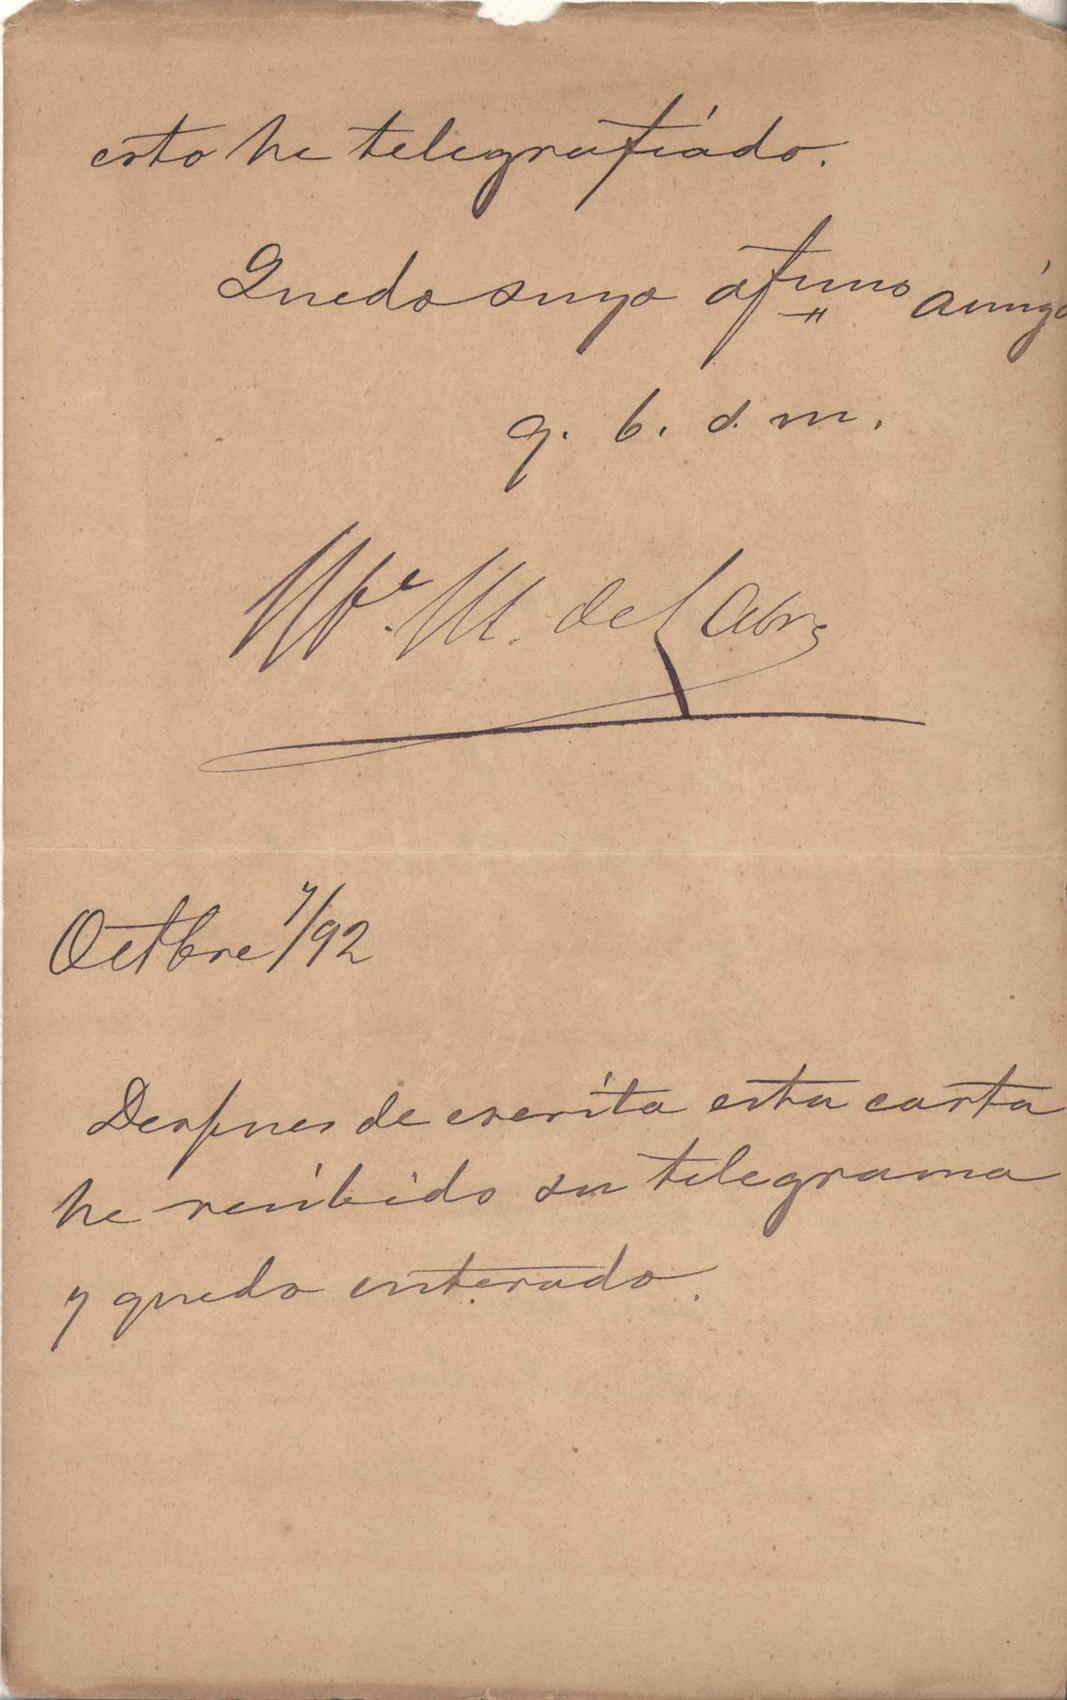 esto he telegrafiádo.
Quedo suyo afmo amigo
q. b. s. m.
M. de Labra
Octbre 7/92
Despues de escrita esta carta
he recibido su telegrama
y quedo enterado.